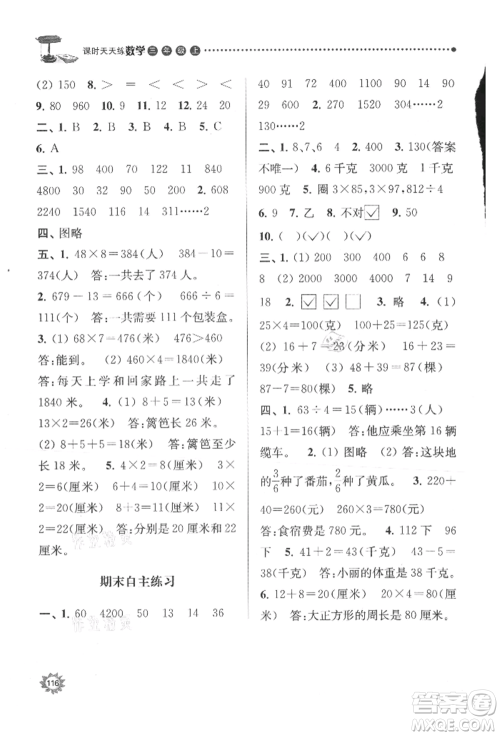 课时天天练 数学 三年级 上
(2) 150 8. > = < > < <
9. 80 960 10. 16 24
二、1. B 2. B 3. C 4. A 5. B
6. A
三、1. 98 400 70 15 400
4800 30 100 2. 1840 698
2240 1540 116 138 131……2
四、图略
五、1. 48×8=384(人) 384-10=
374(人) 答:一共去了374人。
2. 679-13=666(个) 666÷6=
111(个) 答:需要111个包装盒。
3. (1) 68×7=476(米) 476>460
答:能到。 (2) 460×4=1840(米)
答:每天上学和回家路上一共走了
1840米。 4. (1) 8+5=13(米)
13×2=26(米) 答:篱笆长26米。
(2) 8+5+5=18(米) 答:篱笆长
18米。 5. 4×2+2=10(厘米)
3×2=6(厘米) 10×2=20(厘米)
10+6=16(厘米) 16×2=
32(厘米) 答:分别是20厘米和
32厘米。
期末自主练习
一、1. 60 4200 50 13 14 36
1 40 90 800 42 21
2. 291 630 152 107……2
130……2
二、1. 8、7、6 2. 8 3. 130(答案
不唯一) 4. 6千克 3千克
1千克 5. 圈3×85、97×4、64÷4
6. 9 7. 乙 8. 不对☑ 9. 50
10. ( )(√)(√)
三、1. (1) 6 3 3000 8
8 (2) 2000 4000 9
18 2. ☑☑□ 3. 略 4. (1)
25×4=100(米) 100÷4=25(米)
(2) 16+7=23(分米) 16+23=
39(分米) (3) 32+55=87(千克)
87-80=7(千克) 5. 略
四、1. 63÷4=15(辆)……3(人)
15+1=16(辆) 答:他应乘坐第16辆
缆车。 2. (1) 图略 (2) 答:这块地
的3/6种了番茄,2/6种了黄瓜。 3. 220+
40=260(元) 260×3=780(元)
答:食宿费是780元。 4. 90 96
下 5. 31+1=32(千克) 32+
8=40(千克) 答:小丽的体重是40千克。
6. 12÷4=3(厘米) 3+3=6(厘米)
6×4=24(厘米) 答:大正方形的周长是
24厘米。
116
答案圈
MXQE.COM